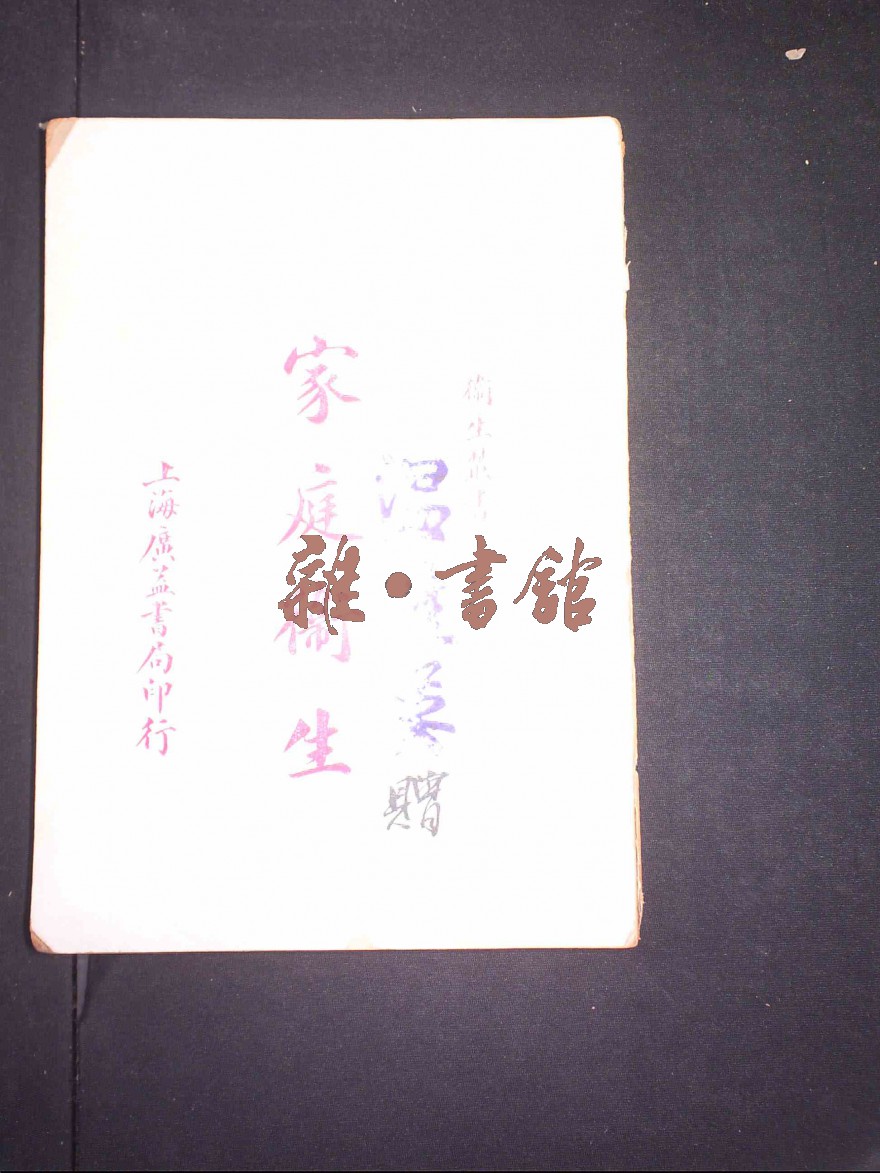 衞生叢書
家庭衞生
上海廣益書局印行
贈
雜·書館